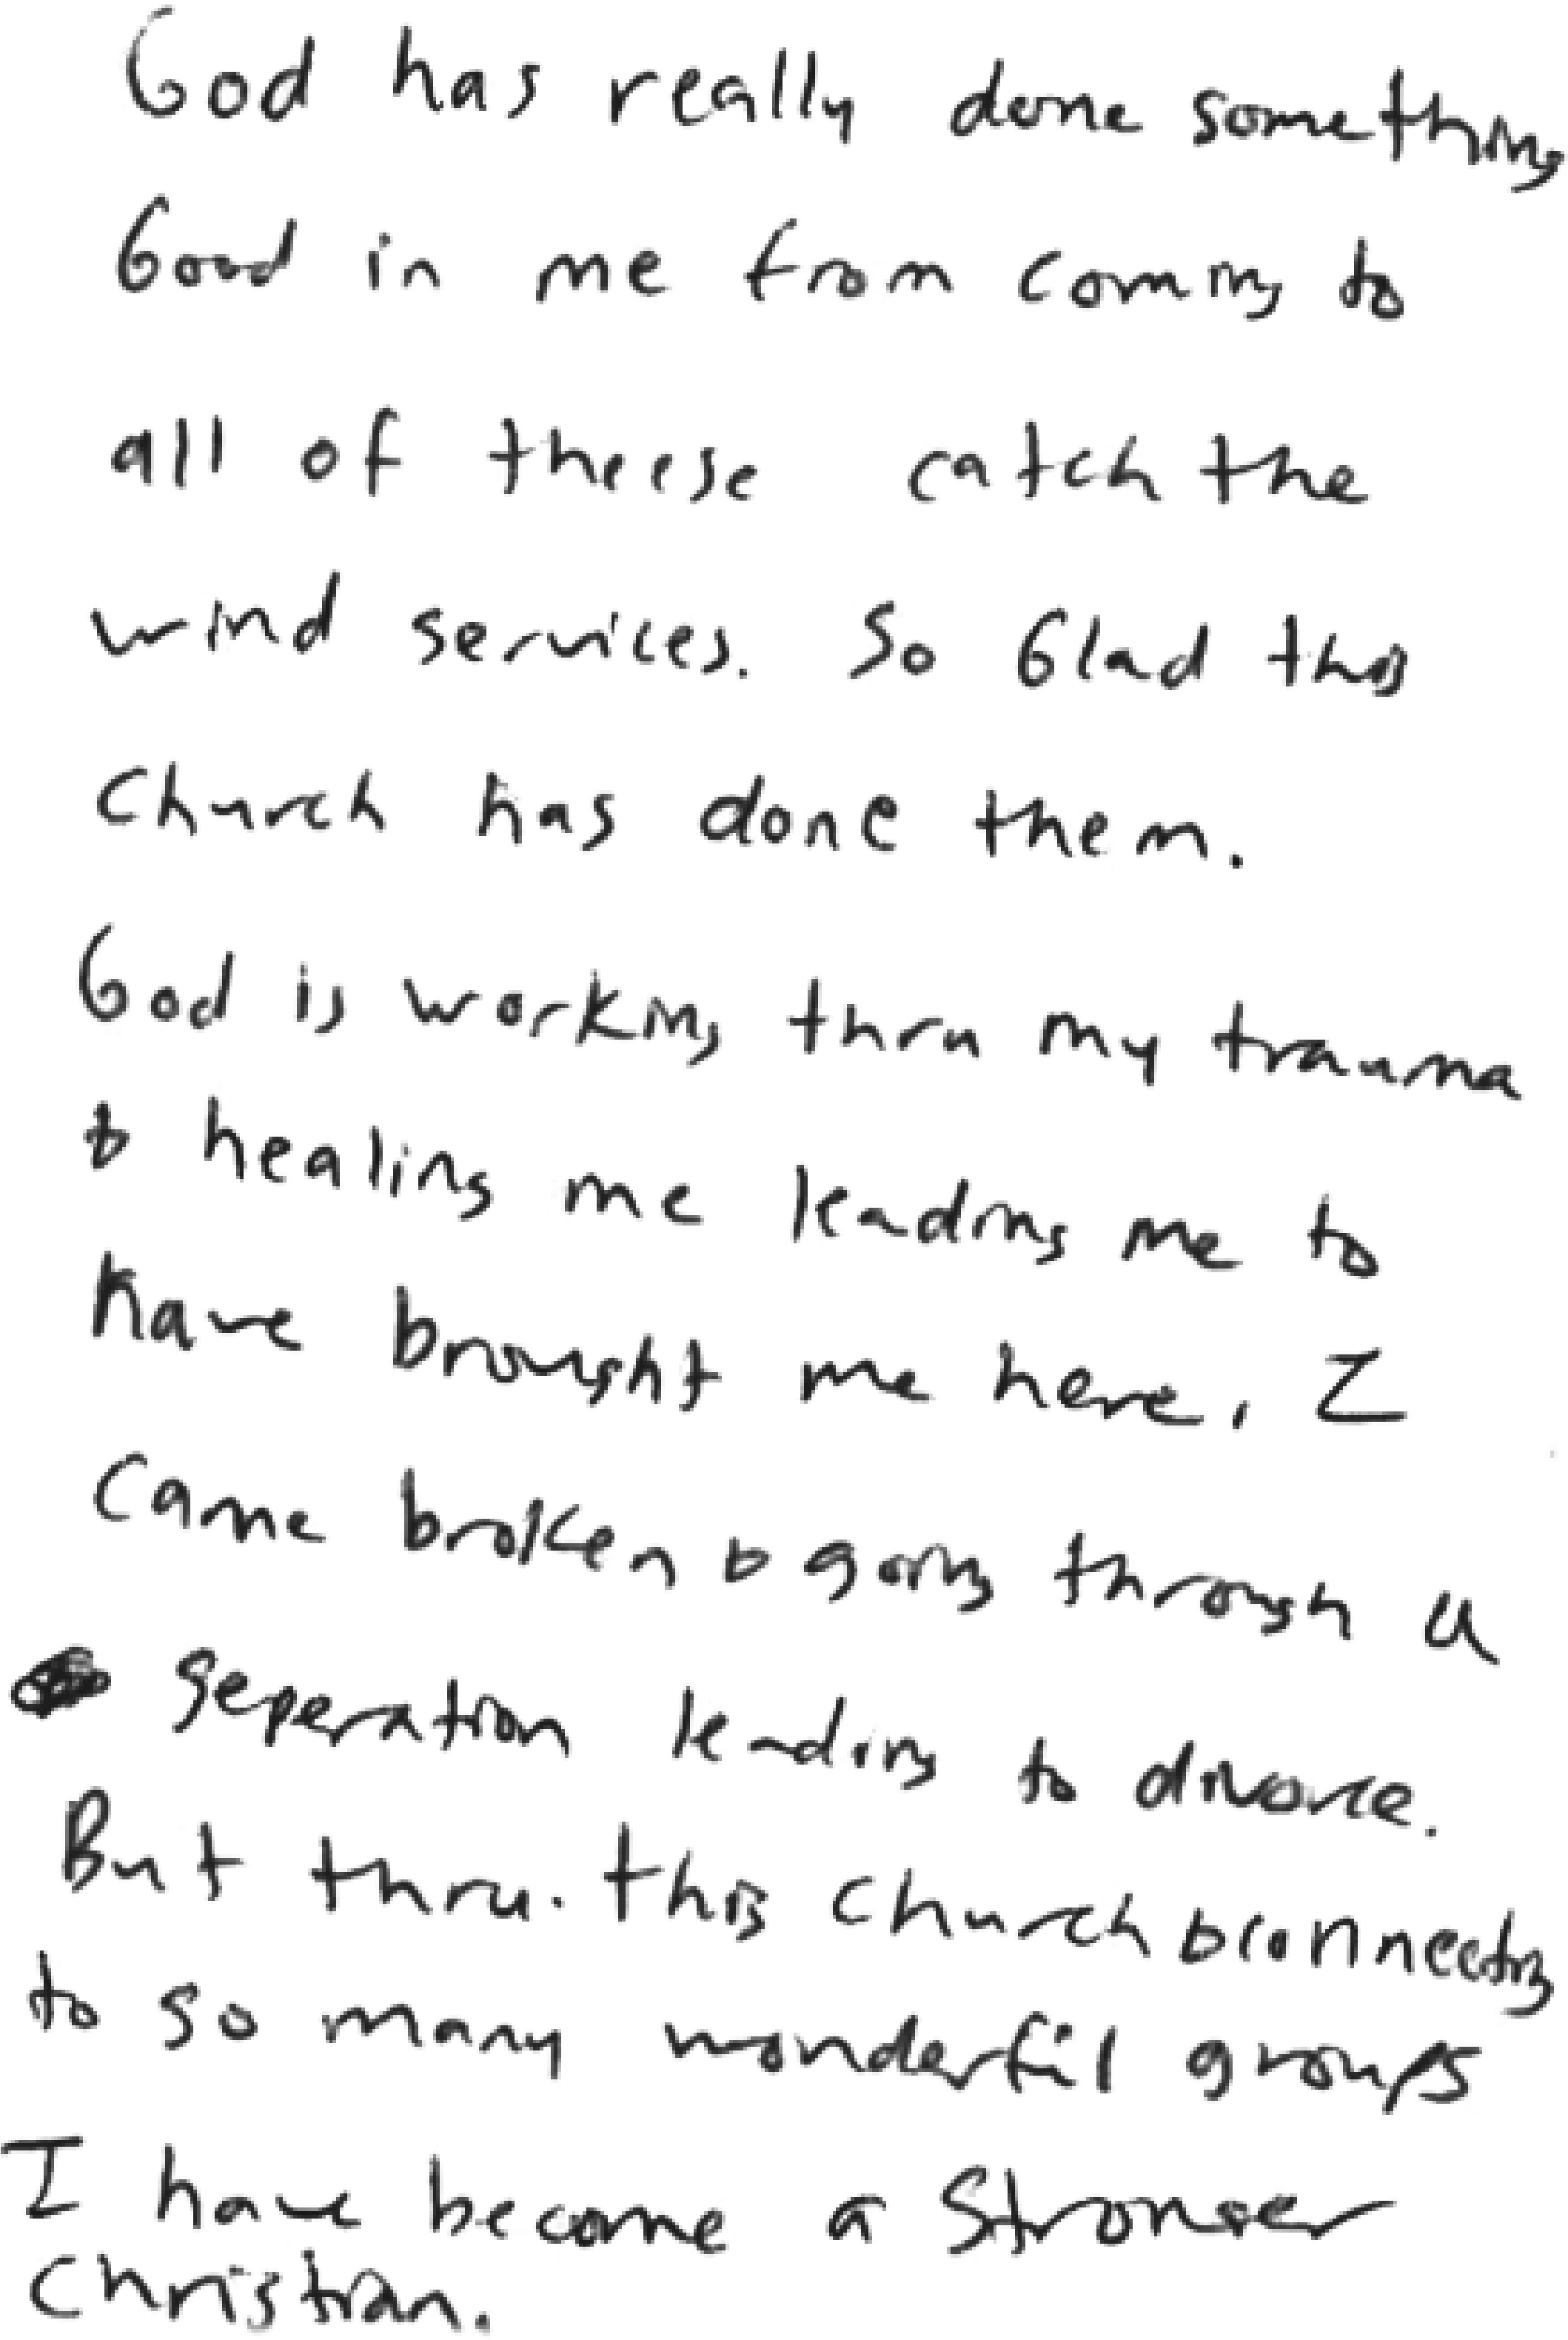 God has really done something
Good in me from coming to
all of theese catch the
wind services. So Glad this
Church has done them.
God is working thru my trauma
& healing me leading me to
have brought me here, I
came broken & going through a
seperation leading to divorce.
But thru. this church & connecting
to so many wonderful groups
I have become a Stronger
Christian.